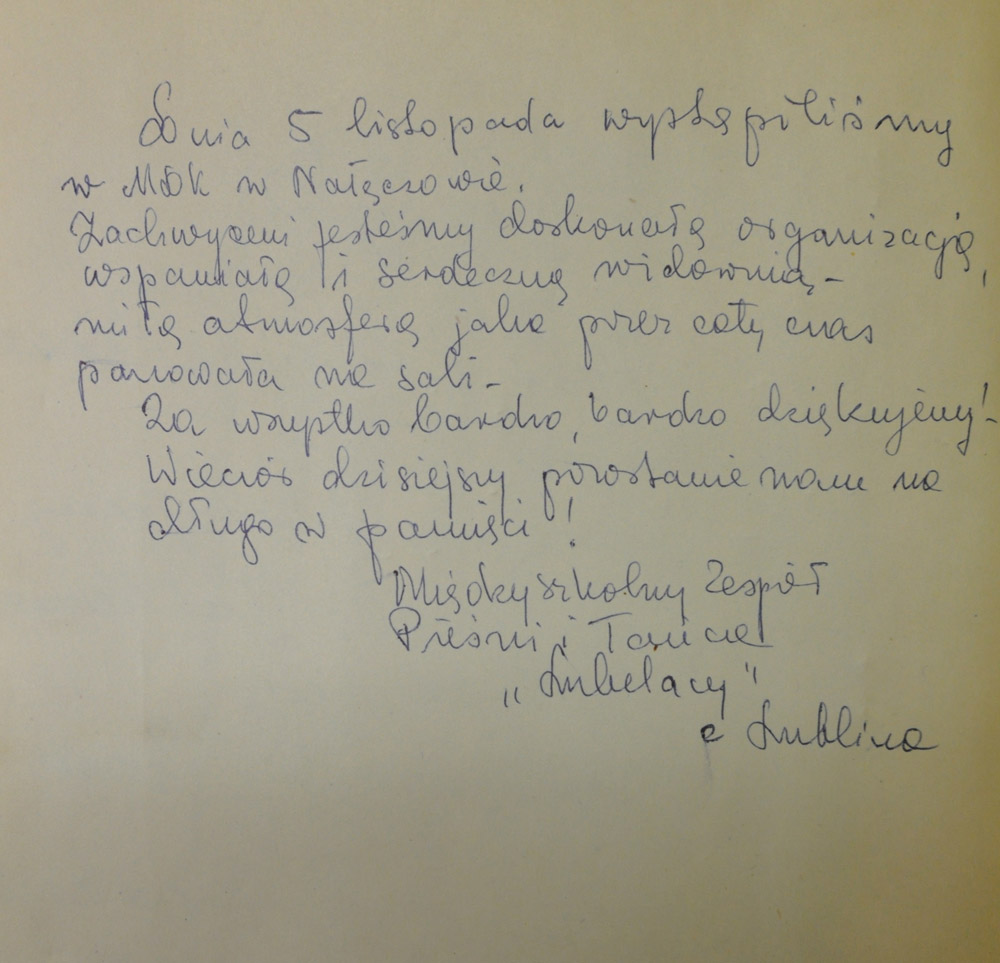 Dnia 5 listopada wystąpiliśmy
w MDK w Nałęczowie.
Zachwyceni jesteśmy doskonałą organizacją,
wspaniałą i serdeczną widownią, -
miłą atmosferą jaka przez cały czas
panowała na sali -
Za wszystko bardzo, bardzo dziękujemy! -
Wieczór dzisiejszy pozostanie nam na
długo w pamięci!
Międzyszkolny Zespół
Pieśni i Tańca
„Lubelacy"
z Lublina